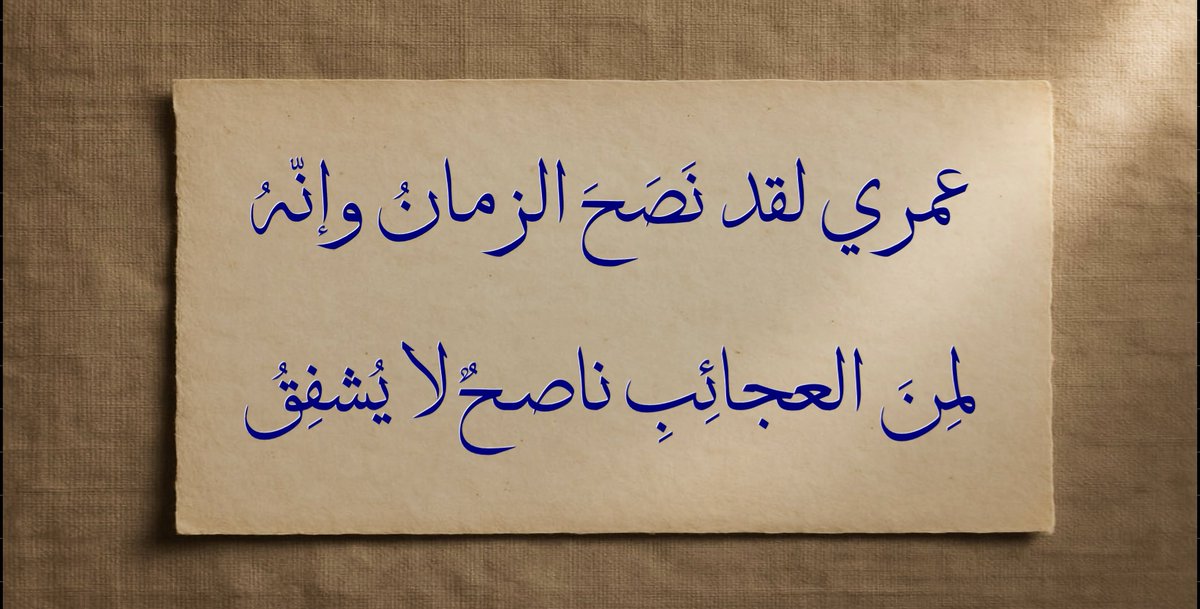 عمري لقد نَصَحَ الزمانُ وإنّهُ
لمِنَ العجائِبِ ناصحٌ لا يُشفِقُ